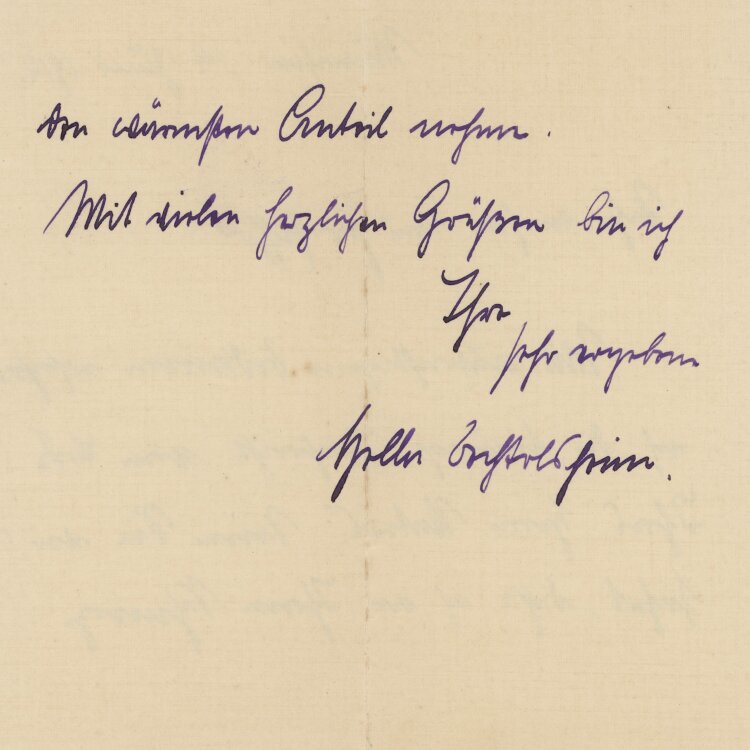 den wärmsten Anteil nehme.
Mit vielen herzlichen Grüßen bin ich
Ihre
sehr ergebene
Hella Bechtolsheim.